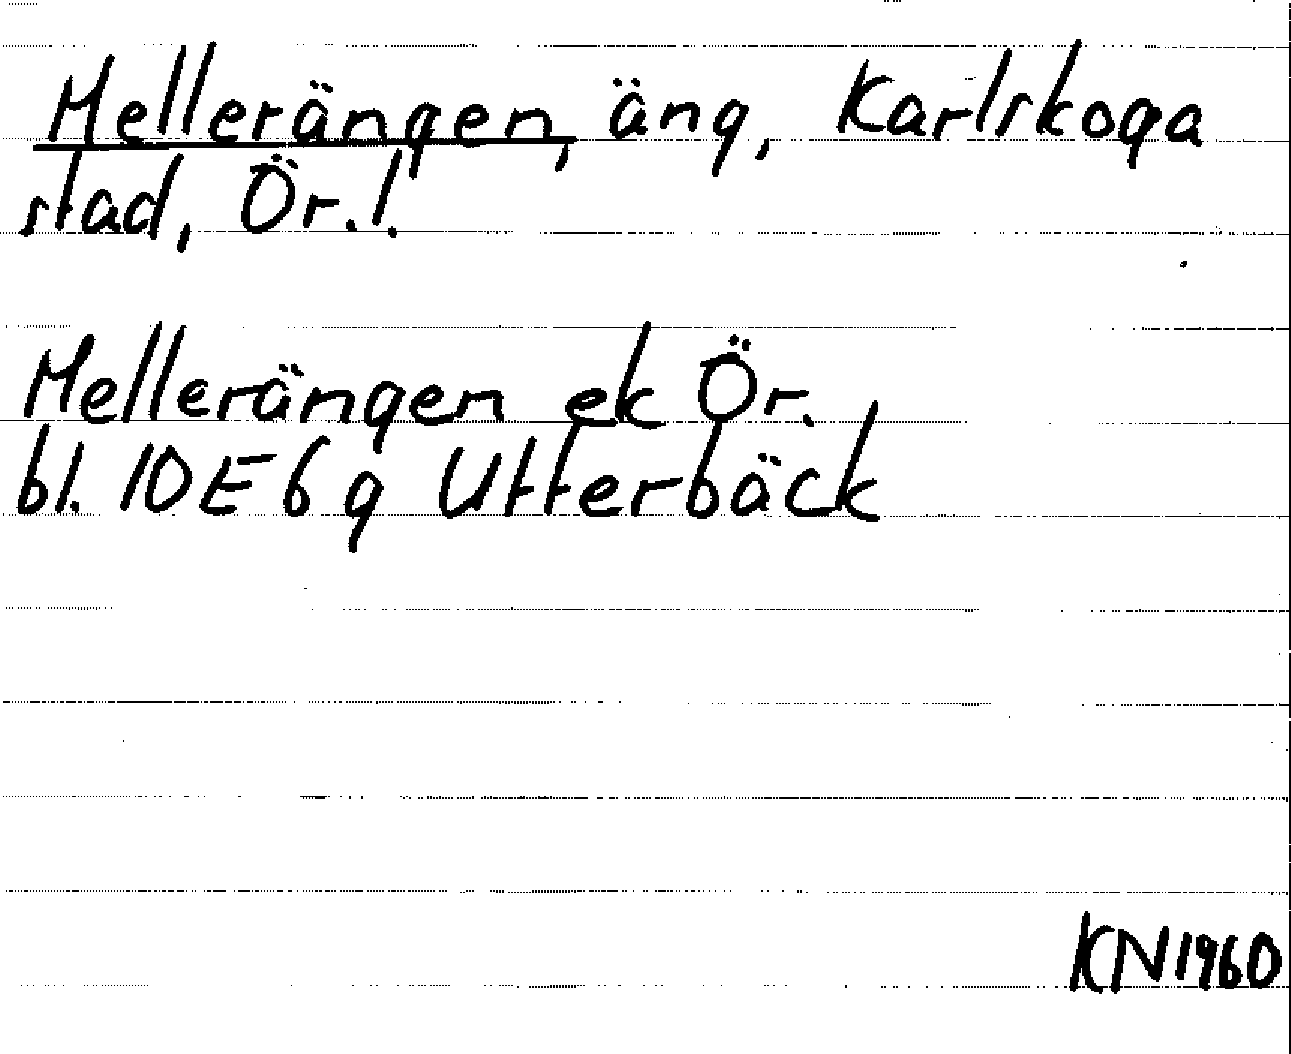 Mellerängen, äng, Karlskoga
stad, Ör.l.
Mellerängen ek Ör.
bl. 10E6g Utterbäck
KN1960